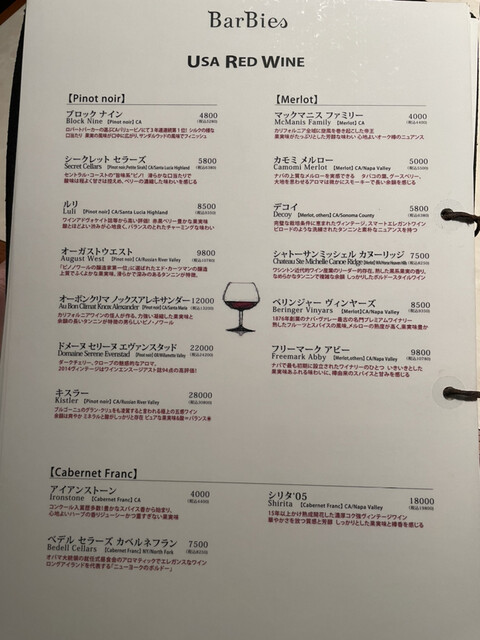 BarBies
USA RED WINE
【Pinot noir】
ブロック ナイン 4800
Block Nine 【Pinot noir】CA (税込5280)
ロバートパーカーの選ぶCAバリューピノにて3年連続第1位! シルクの様な
口当たり 果実の風味が口中に広がり、サンダルウッドの風味でフィニッシュ
シークレット セラーズ 5800
Secret Cellars 【Pinot noir,Petite Sirah】CA/Santa Lucia Highland (税込6380)
セントラル・コーストの"旨味系"ピノ! 滑らかな口当たりで
酸味は程よく甘さは控えめ、ベリーの濃縮した味わいを感じる
ルリ 8500
Luli 【Pinot noir】CA/Santa Lucia Highland (税込9350)
ワインアドヴォケイト誌等から高い評価! 赤黒ベリー豊かな果実味
酸とほどよい渋みが心地良く、バランスのとれたチャーミングな味わい
オーガストウエスト 9800
August West 【Pinot noir】CA/Russian River Valley (税込10780)
「ピノノワールの醸造家第一位」に選ばれたエド・カーツマンの醸造
上質でふくよかな果実味、滑らかで深みのあるタンニンが特徴。
オーボンクリマ ノックスアレキサンダー 12000
Au Bon Climat Knox Alexander 【Pinot noir】CA (税込13200)
カリフォルニアワインの怪人が作る、力強い凝縮した果実味と
余韻の長いタンニンが特徴の男らしいピノ・ノワール
ドメーヌ セリーヌ エヴァンスタッド 22000
Domaine Serene Evenstad 【Pinot noir】OR/Willamette Valley (税込24200)
ダークチェリー、クローブの魅惑的なアロマ。
2014ヴィンテージはワインエンスージアスト誌94点の高評価!
キスラー 28000
Kistler 【Pinot noir】CA/Russian River Valley (税込30800)
ブルゴーニュのグラン・クリュをも凌駕すると言われる極上の五感ワイン
余韻は爽やか ミネラルと酸がしっかりと存在 ピュアな果実味&酸=バランス◎
【Merlot】
マックマニス ファミリー 4000
McManis Family 【Merlot】CA (税込4400)
カリフォルニア全域に旋風を巻き起こした帝王
果実味がたっぷりとした芳醇な味わい 心地よいオーク樽のニュアンス
カモミ メルロー 5000
Camomi Merlot 【Merlot】CA/Napa Valley (税込5500)
ナパの上質なメルローを実感できる タバコの葉、グースベリー、
大地を思わせるアロマは微かにスモーキーで長い余韻を感じる
デコイ 5800
Decoy 【Merlot, others】CA/Sonoma County (税込6380)
完璧な栽培条件に恵まれたヴィンテージ、スマートエレガントワイン
ビロードのような洗練されたタンニンと柔朴なニュアンスを持つ
シャトーサンミッシェル カヌーリッジ 7500
Chateau Ste Michelle Canoe Ridge 【Merlot】WA/Horse Heaven Hills (税込8250)
ワシントン近代的ワイン産業のリーダー的存在。熟した黒系果実の香り、
なめらかなタンニンで複雑な余韻 しっかりしたボルドースタイルワイン
ベリンジャー ヴィンヤーズ 8500
Beringer Vinyars 【Merlot】CA/Napa Valley (税込9350)
1876年創業のナパ・ヴァレー最古の名門プレミアムワイナリー
熟したフルーツとスパイスの風味。メルローの熟度が高く、果実味豊か
フリーマーク アビー 9800
Freemark Abby 【Merlot,others】CA/Napa Valley (税込10780)
ナパで最も初期に設立されたワイナリーのひとつ いきいきとした
果実味あふれる味わいに、樽由来のスパイスと甘みを感じる
【Cabernet Franc】
アイアンストーン 4000
Ironstone 【Cabernet Franc】CA (税込4400)
コンクール入賞歴多数!豊かなスパイス香から始まり、
心地よいハーブの香りジューシーかつ重すぎない果実味
ベデル セラーズ カベルネフラン 7500
Bedell Cellars 【Cabernet Franc】NY/North Fork (税込8250)
オバマ大統領の就任式昼食会のアロマティックでエレガンスなワイン
ロングアイランドを代表する「ニューヨークのボルドー」
シリタ'05 18000
Shirita 【Cabernet Franc】CA/Napa Valley (税込19800)
15年以上かけ熟成開花した濃厚コク強ヴィンテージワイン
華やかさを放つ質感と芳醇 しっかりとした果実味と樽香を感じる